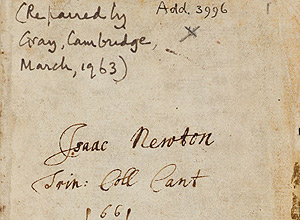 (Repaired by
Gray, Cambridge,
March, 1963)
Add. 3996
Isaac Newton
Trin: Coll Cant
1661